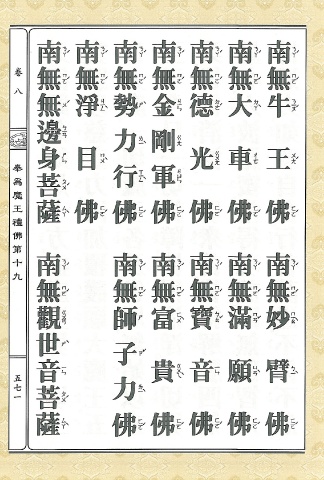 南無牛王佛　南無妙臂佛
南無大車佛　南無滿願佛
南無德光佛　南無寶音佛
南無金剛軍佛　南無富貴佛
南無勢力行佛　南無師子力佛
南無淨目佛
南無無邊身菩薩　南無觀世音菩薩
卷八　奉為魔王禮佛第十九　五七一